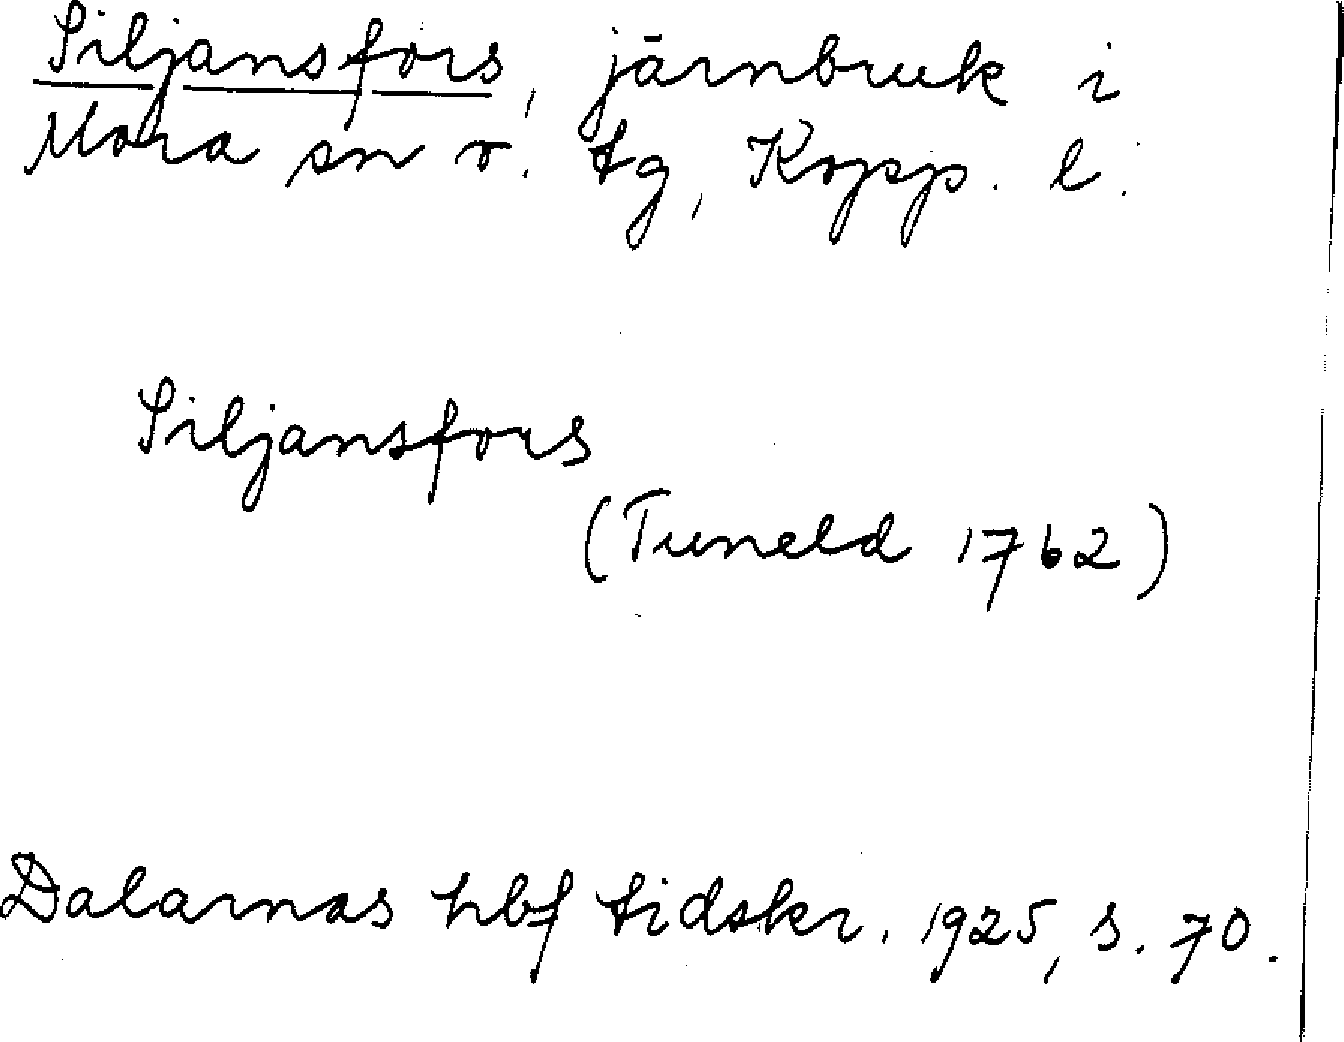 Siljansfors, järnbruk i
Mora sn o. tg, Kopp. l.
Siljansfors
(Tuneld 1762)
Dalarnas hbf tidskr. 1925, s. 70.